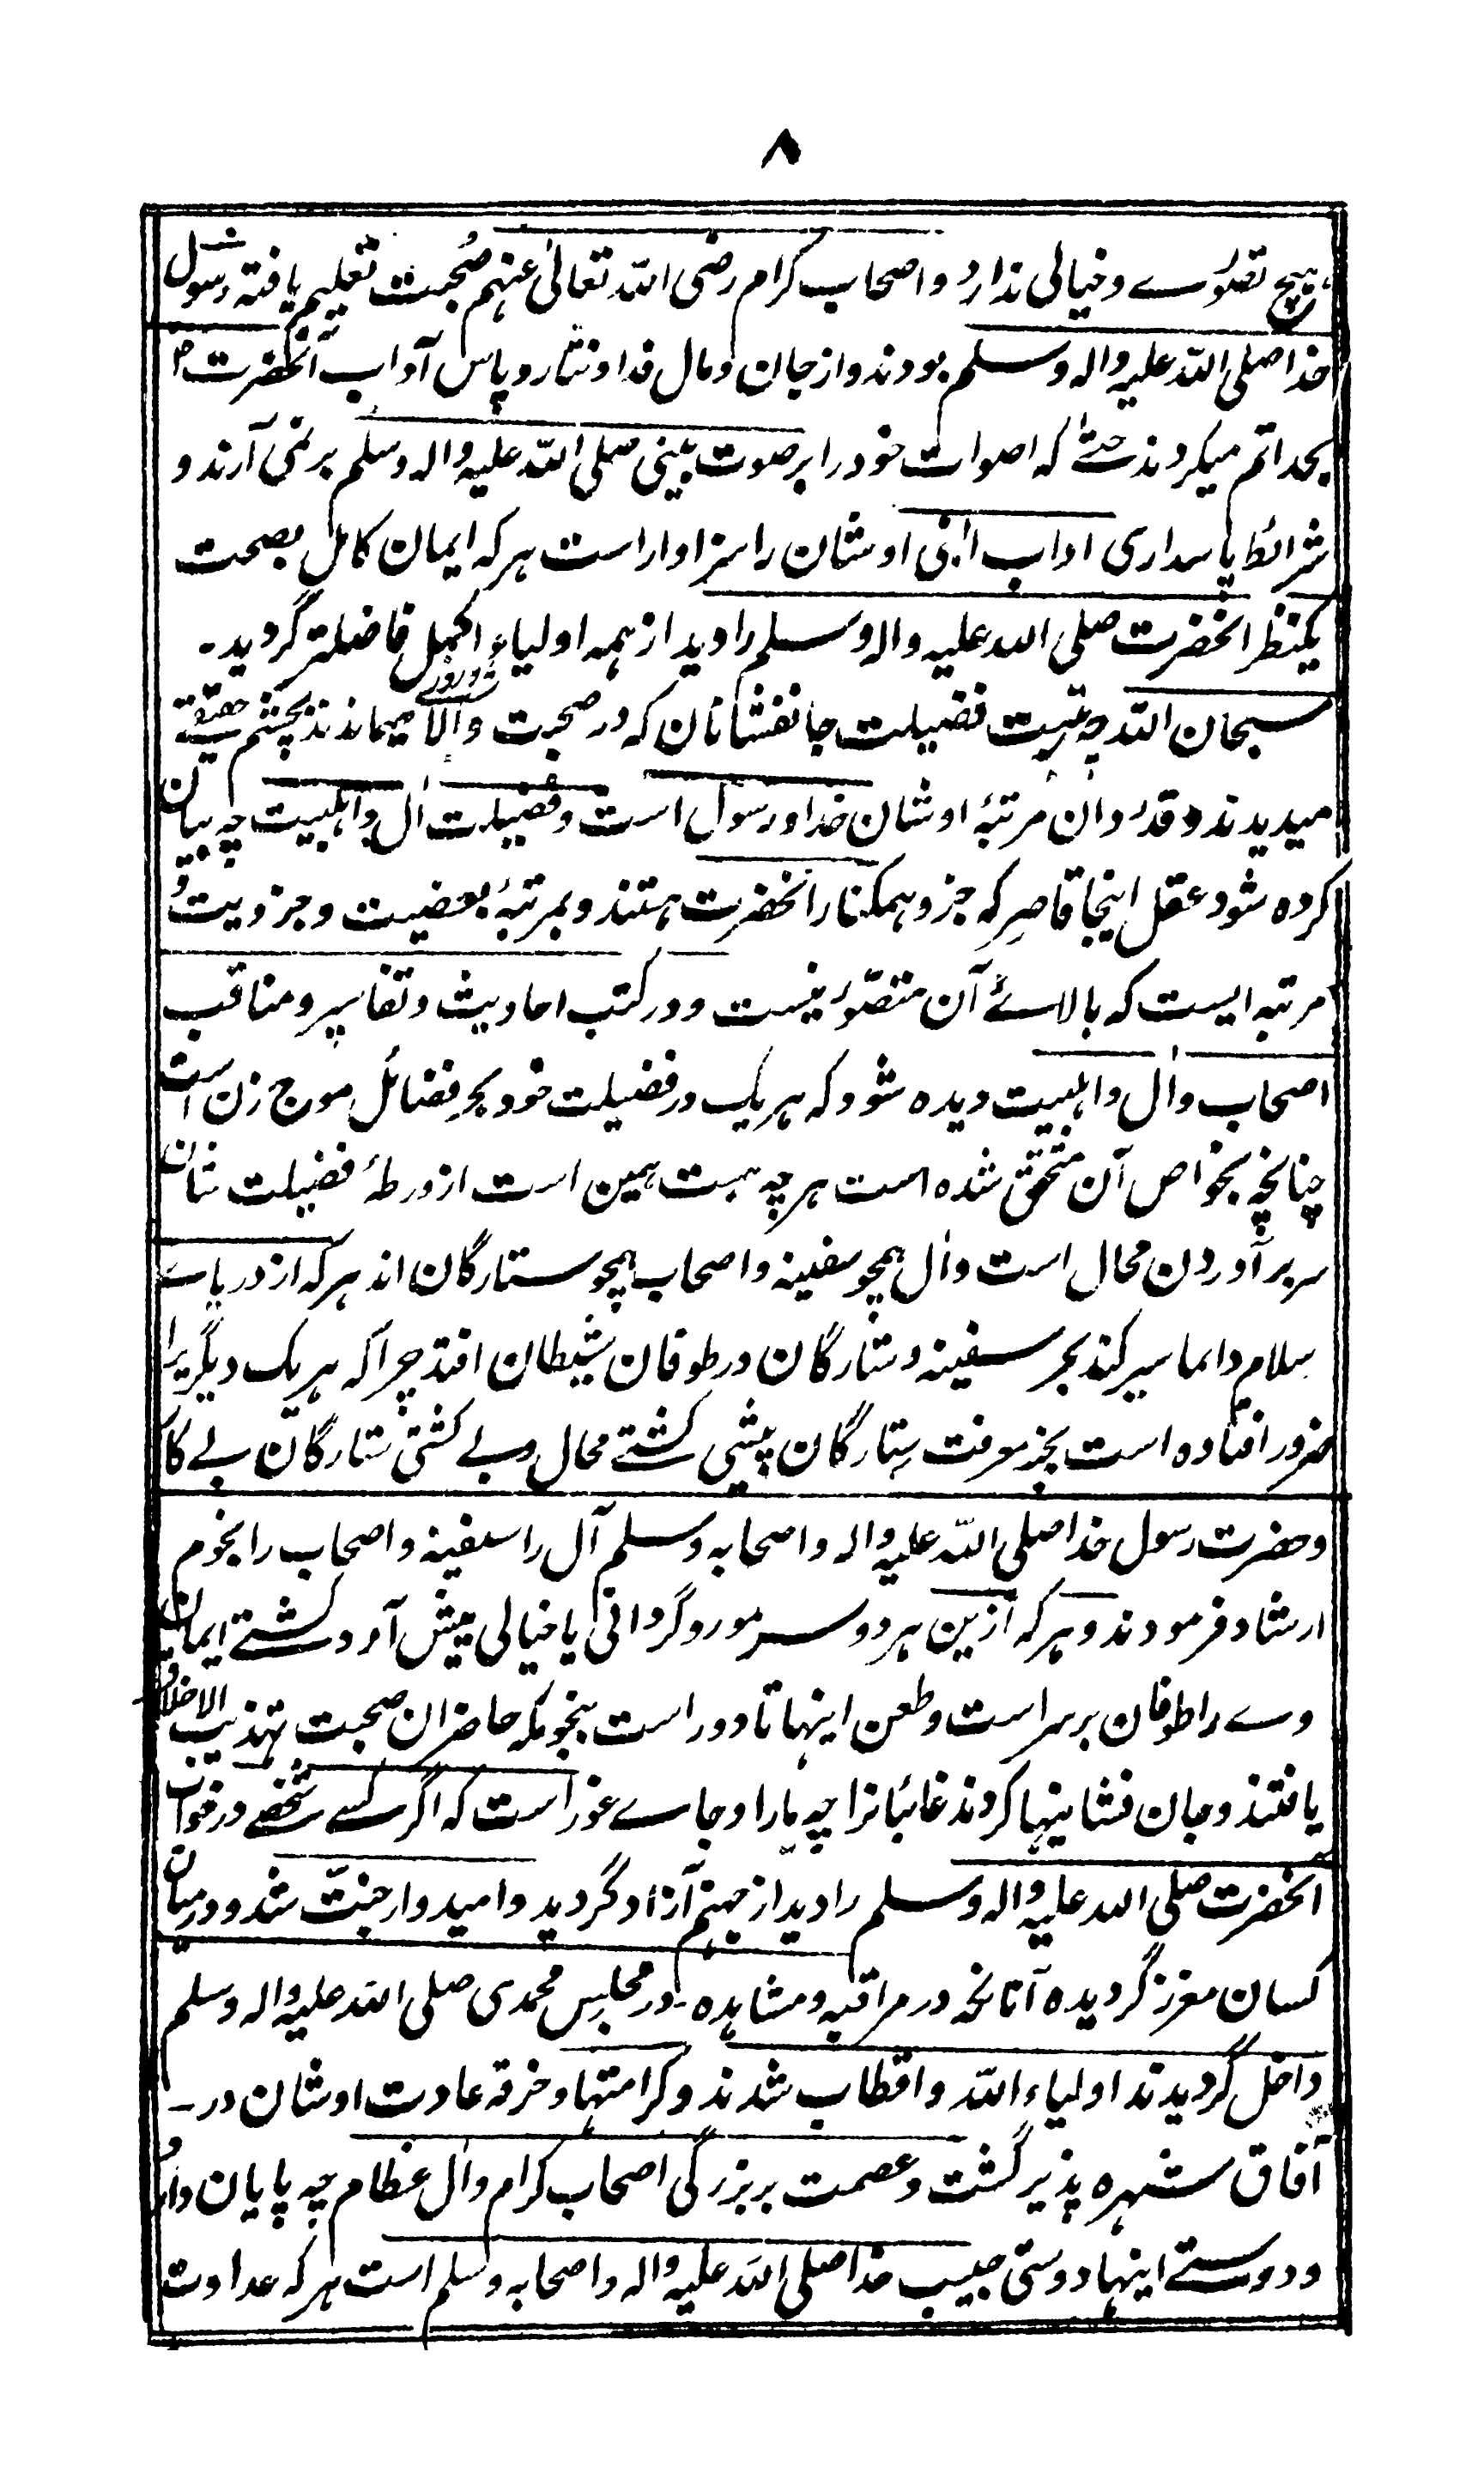 ۸
ہیچ تصوّرے و خیالی ندارد و اصحاب کرام رضی اللہ تعالیٰ عنہم صُحبت تعلیم یافتہ رسول
خدا صلی اللہ علیہ والہ وسلم بودند و از جان و مال فدا و نثار و پاس آداب آنحضرت ؐ
بحد اتم میکردند حتےٰ کہ اصوات خود را بر صوت نبی صلی اللہ علیہ والہ وسلم بر نمی آرند و
شرائط پاسداری اداب النبی اوشان را سزاوار است ہر کہ ایمان کامل بصحت
یکنظر انحضرت صلی اللہ علیہ والہ وسلم را دید از ہمہ اولیاء اکمل فاضلتر گردید۔
سبحان اللہ چہ فضیلت جانفشانان کہ در صحبت والا شب و روز میماندند بچشم حقیقتے
میدیدند و قدر دان مرتبۂ اوشان خدا و رسول است و فضیلت اٰل و اہلبیت چہ بیان
کردہ شود عقل اینجا قاصر کہ جز و ہمکنار انحضرت ہستند و بمرتبۂ بعضیت و جزویت و
مرتبہ ایست کہ بالائے آن متصوّر نیست و در کتب احادیث و تفاسیر و مناقب
اصحاب و اٰل و اہلبیت دیدہ شود کہ ہر یک در فضیلت خود بحر فضائل موج زن است
چنانچہ بخواص آن متحقق شدہ است ہر چہ ہست ہمین است از ورطۂ فضیلت شان
سر بر آوردن محال است و اٰل ہمچو سفینہ و اصحاب ہمچو ستارگان اند ہر کہ از دریاے
سلام دایما سیر کند بجر سفینہ و ستارگان در طوفان شیطان افتد چرا کہ ہر یک دیگر یرا
ضرور افتادہ است بجز معرفت ستارگان پیشی کشتے محال و بے کشتی ستارگان بے کا
و حضرت رسول خدا صلی اللہ علیہ والہ و اصحابہ وسلم آل را سفینہ و اصحاب را نجوم
ارشاد فرمودند و ہر کہ ازین ہر دو سر مو رو گردانی یا خیالی پیش آرد کشتے ایمان
وے را طوفان بر سر است و طعن اینہا تا دور است بنحویکہ حاضران صحبت تہذیب الاخلاق
یافتند و جان فشانیہا کردند غائبانرا چہ یارا و جاے غور است کہ اگر کسے شخصے در خواب
انحضرت صلی اللہ علیہ والہ وسلم را دید از جہنم آزاد گردید و امیدوار جنّت شد و درمیان
کسان معزز گردیدہ آنانکہ در مراقبہ و مشاہدہ۔ در مجلس محمدی صلی اللہ علیہ والہ وسلم
داخل گردیدند اولیاء اللہ و اقطاب شدند و کرامتہا و خرقہ عادت اوشان در۔
آفاق شہرہ پذیر گشت و عصمت بر بزرگی اصحاب کرام و اٰل عظام چہ پایان دارد
و دوستے اینہا دوستی حبیب خدا صلی اللہ علیہ والہ و اصحابہ وسلم است ہر کہ عداوت